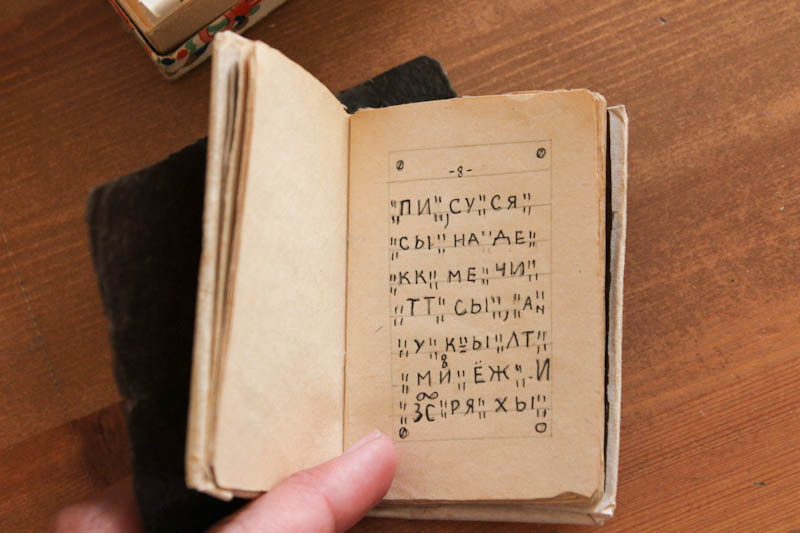 -8-
"ПИ",СУ"СЯ"
"СЫ"НА"ДЕ"
"КК"МЕ"ЧИ"
"ТТ"СЫ",А"
"У"К"Ы"ЛТ"
"МИ"ЁЖ"-И
"ЗС"РЯ"ХЫ"